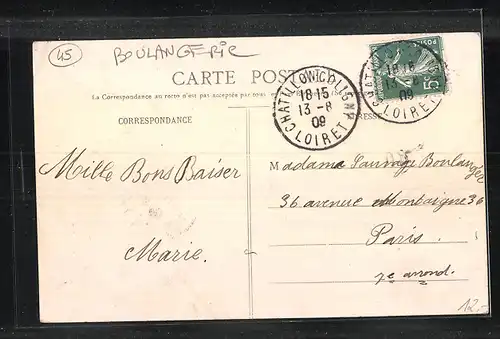 45
BOULANGERIE
CARTE POST
La Correspondance au recto n'est pas acceptée par tous
CORRESPONDANCE
CHATILLON COLIGNY
18 15
13 - 8
09
LOIRET
POSTES
5c
18 15
13
09
LOIRET
RESSE
Mille Bons Baiser
Marie.
Madame Sauvage Boulanger
36 avenue Montaigne 36
Paris.
arrond.
12.-